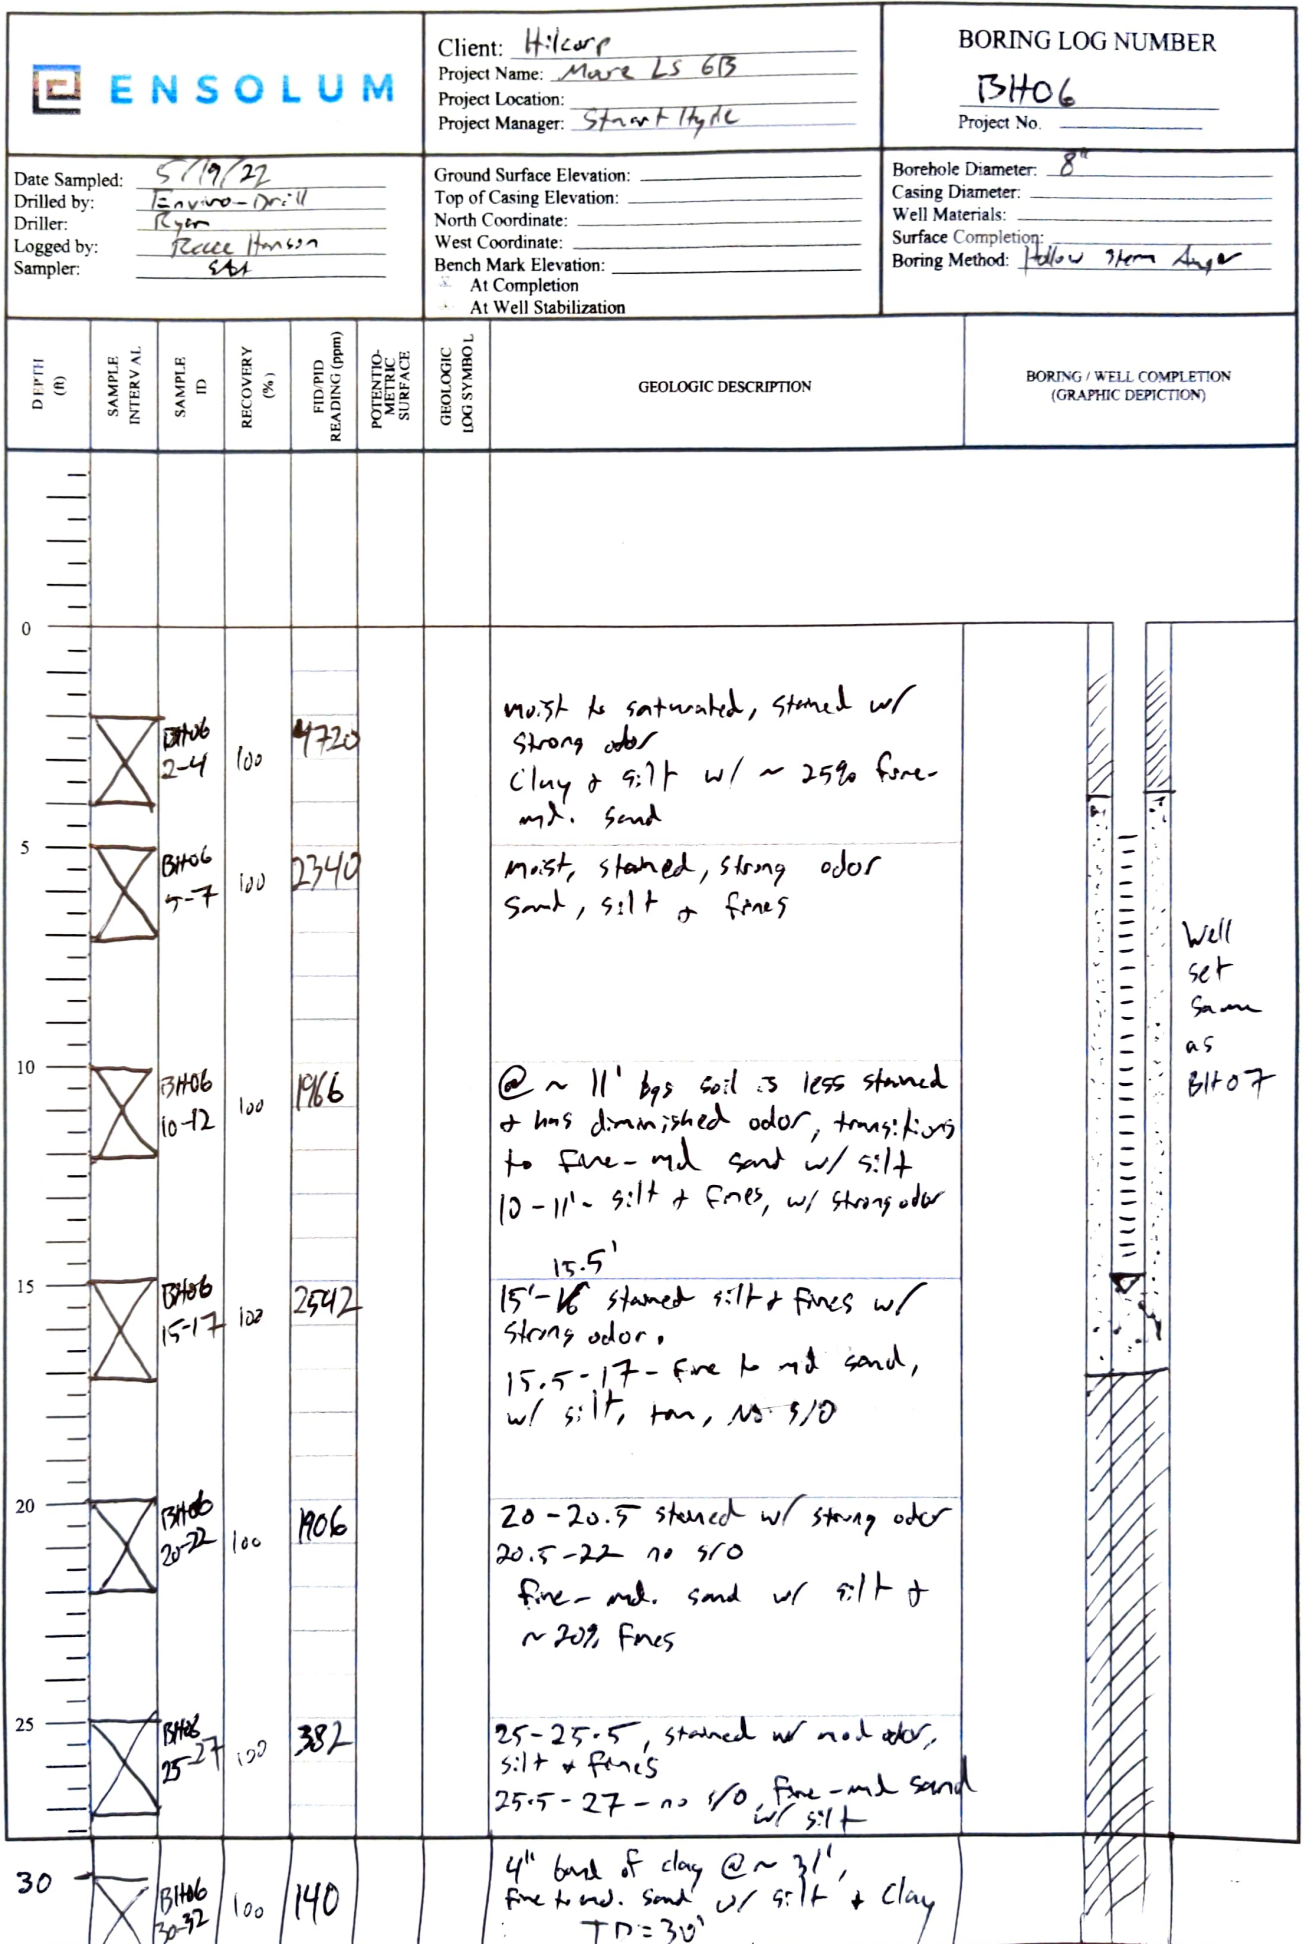 ENSOLUM
Client: Hilcorp
Project Name: Moore LS 6B
Project Location:
Project Manager: Stuart Hyde
BORING LOG NUMBER
BH06
Project No.
Date Sampled: 5/19/22
Drilled by: Enviro-Drill
Driller: Ryan
Logged by: Reece Hanson
Sampler:
Ground Surface Elevation:
Top of Casing Elevation:
North Coordinate:
West Coordinate:
Bench Mark Elevation:
At Completion
At Well Stabilization
Borehole Diameter: 8"
Casing Diameter:
Well Materials:
Surface Completion:
Boring Method: Hollow Stem Auger
DEPTH (ft)
SAMPLE INTERVAL
SAMPLE ID
RECOVERY (%)
FID/PID READING (ppm)
POTENTIO-METRIC SURFACE
GEOLOGIC LOG SYMBOL
GEOLOGIC DESCRIPTION
BORING / WELL COMPLETION
(GRAPHIC DEPICTION)
0
BH06
2-4
100
4720
moist to saturated, stained w/
strong odor
Clay & silt w/ ~ 25% fine-
md. sand
5
BH06
5-7
100
2340
moist, stained, strong odor
sand, silt & fines
Well
set
same
as
BH07
10
BH06
10-12
100
1966
@ ~ 11' bgs soil is less stained
& has diminished odor, transitions
to fine-md sand w/ silt
10-11'- silt & fines, w/ strong odor
15.5'
15
BH06
15-17
100
2542
15'-16 stained silt & fines w/
strong odor.
15.5-17- fine to md sand,
w/ silt, tan, no s/o
20
BH06
20-22
100
1906
20-20.5 stained w/ strong odor
20.5-22 no s/o
fine-md. sand w/ silt &
~ 20% fines
25
BH06
25-27
100
382
25-25.5, stained w/ mod odor,
silt & fines
25.5-27-no s/o, fine-md sand
w/ silt
30
BH06
30-32
100
140
4" band of clay @ ~ 31',
fine to md. sand w/ silt & clay
TD=30'